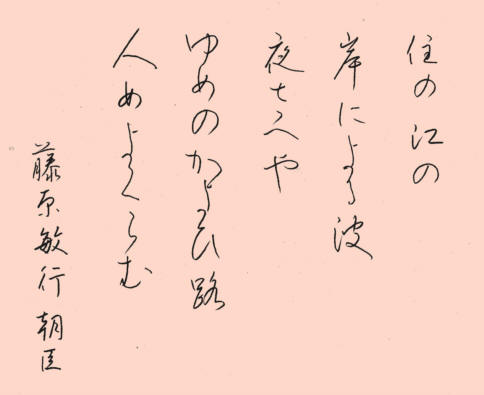 住の江の
岸による波
夜さへや
ゆめのかよひ路
人めよくらむ
藤原敏行朝臣